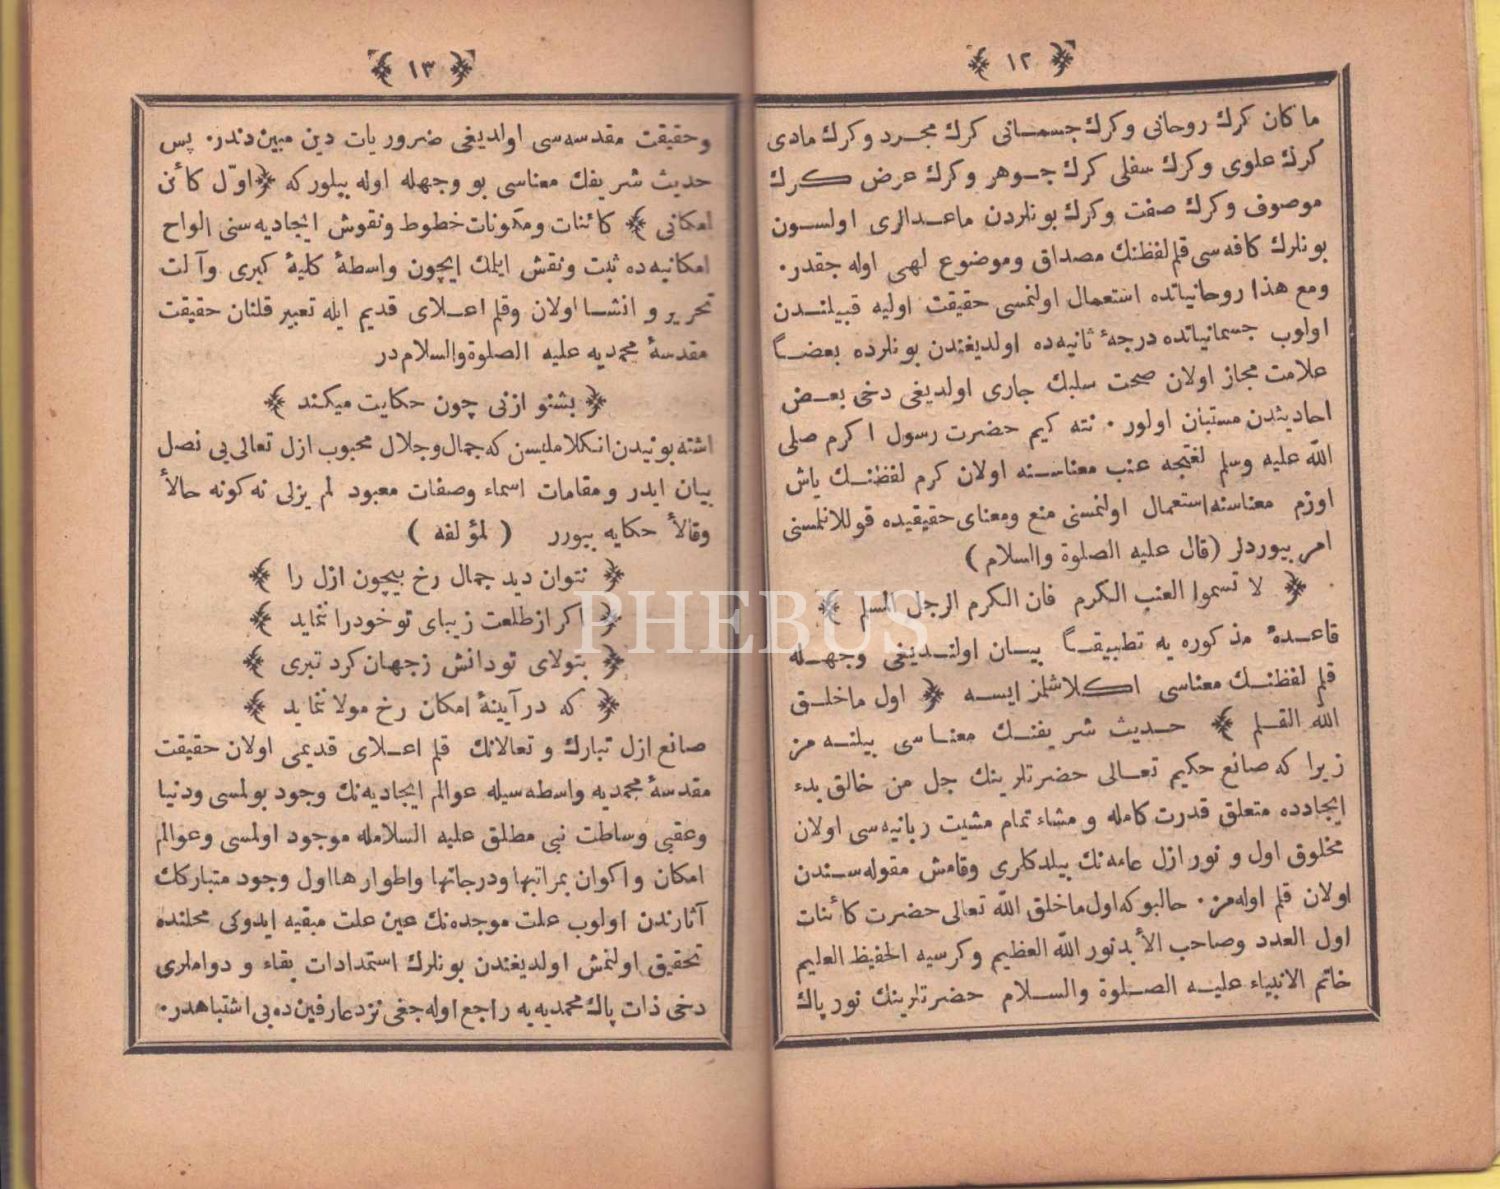 ﴿ ١٢ ﴾
ما كان كرك روحانى وكرك جسمانى كرك مجرد وكرك مادى
كرك علوى وكرك سفلى كرك جوهر وكرك عرض كرك
موصوف وكرك صفت وكرك بونلردن ماعدالرى اولسون
بونلرك كافه سى قلم لفظنك مصداق وموضوع لهى اوله جقدر.
ومع هذا روحانياتده استعمال اولنمسى حقيقت اوليه قبيلندن
اولوب جسمانياتده درجهٔ ثانيه ده اولديغندن بونلرده بعضاً
علامت مجاز اولان صحت سلبك جارى اولديغى دخى بعض
احاديثدن مستبان اولور. نته كيم حضرت رسول اكرم صلى
الله عليه وسلم لغتجه عنب معناسنه اولان كرم لفظنك ياش
اوزم معناسنه استعمال اولنمسنى منع ومعناى حقيقيده قوللانلمسنى
امر بيوردلر (قال عليه الصلوة والسلام)
﴿ لا تسموا العنب الكرم فان الكرم الرجل المسلم ﴾
قاعدهٔ مذكوره يه تطبيقاً بيان اولنديغى وجهله
قلم لفظنك معناسى اكلاشلمز ايسه ﴿ اول ماخلق
الله القلم ﴾ حديث شريفنك معناسى بيلنه مز
زيرا كه صانع حكيم تعالى حضرتلرينك جل من خالق بدء
ايجادده متعلق قدرت كامله ومشاء تمام مشيت ربانيه سى اولان
مخلوق اول و نور ازل عامه نك بيلدكلرى وقامش مقوله سندن
اولان قلم اوله مز. حالبوكه اول ماخلق الله تعالى حضرت كائنات
اول العدد وصاحب الأبد نور الله العظيم وكرسيه الحفيظ العليم
خاتم الانبياء عليه الصلوة والسلام حضرتلرينك نور پاك
﴿ ١٣ ﴾
وحقيقت مقدسه سى اولديغى ضروريات دين مبين دندر. پس
حديث شريفك معناسى بو وجهله اوله بيلور كه ﴿ اوّل كائن
امكانى ﴾ كائنات ومكونات خطوط ونقوش ايجاديه سنى الواح
امكانيه ده ثبت ونقش ايلمك ايچون واسطهٔ كليهٔ كبرى وآلت
تحرير و انشا اولان وقلم اعلاى قديم ايله تعبير قلنان حقيقت
مقدسهٔ محمديه عليه الصلوة والسلام در
﴿ بشنو ازنى چون حكايت ميكند ﴾
اشته بونيدن انكلامليسن كه جمال وجلال محبوب ازل تعالى يى نصل
بيان ايدر ومقامات اسماء وصفات معبود لم يزلى نه كونه حالاً
وقالاً حكايه بيورر ( لمؤلفه )
﴿ نتوان ديد جمال رخ بيچون ازل را ﴾
﴿ اكر از طلعت زيباى تو خودرا ننمايد ﴾
﴿ بتولاى تو دانش زجهان كرد تبرى ﴾
﴿ كه در آيينهٔ امكان رخ مولا ننمايد ﴾
صانع ازل تبارك و تعالانك قلم اعلاى قديمى اولان حقيقت
مقدسهٔ محمديه واسطه سيله عوالم ايجاديه نك وجود بولمسى ودنيا
وعقبى وساطت نبى مطلق عليه السلامله موجود اولمسى وعوالم
امكان واكوان بمراتبها ودرجاتها واطوارها اول وجود متباركك
آثارندن اولوب علت موجده نك عين علت مبقيه ايدوكى محلنده
تحقيق اولنمش اولديغندن بونلرك استمدادات بقاء و دواملرى
دخى ذات پاك محمديه يه راجع اوله جغى نزد عارفين ده بى اشتباهدر.
PHEBUS